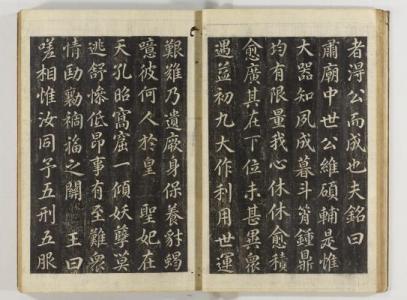 者得公而成也夫銘曰
肅廟中世公維碩輔是惟
大器知夙成暮斗筲鍾鼎
均有限量我心休休愈積
愈廣其在丁位未甚異衆
遇益初九大作利用世運
艱難乃遺厥身保養豺蝎
噫彼何人於皇聖妃在
天孔昭窩窟一傾妖孽莫
逃舒慘低昂事有至難衆
情劻勷禍福之關王曰
嗟相惟汝同予五刑五服